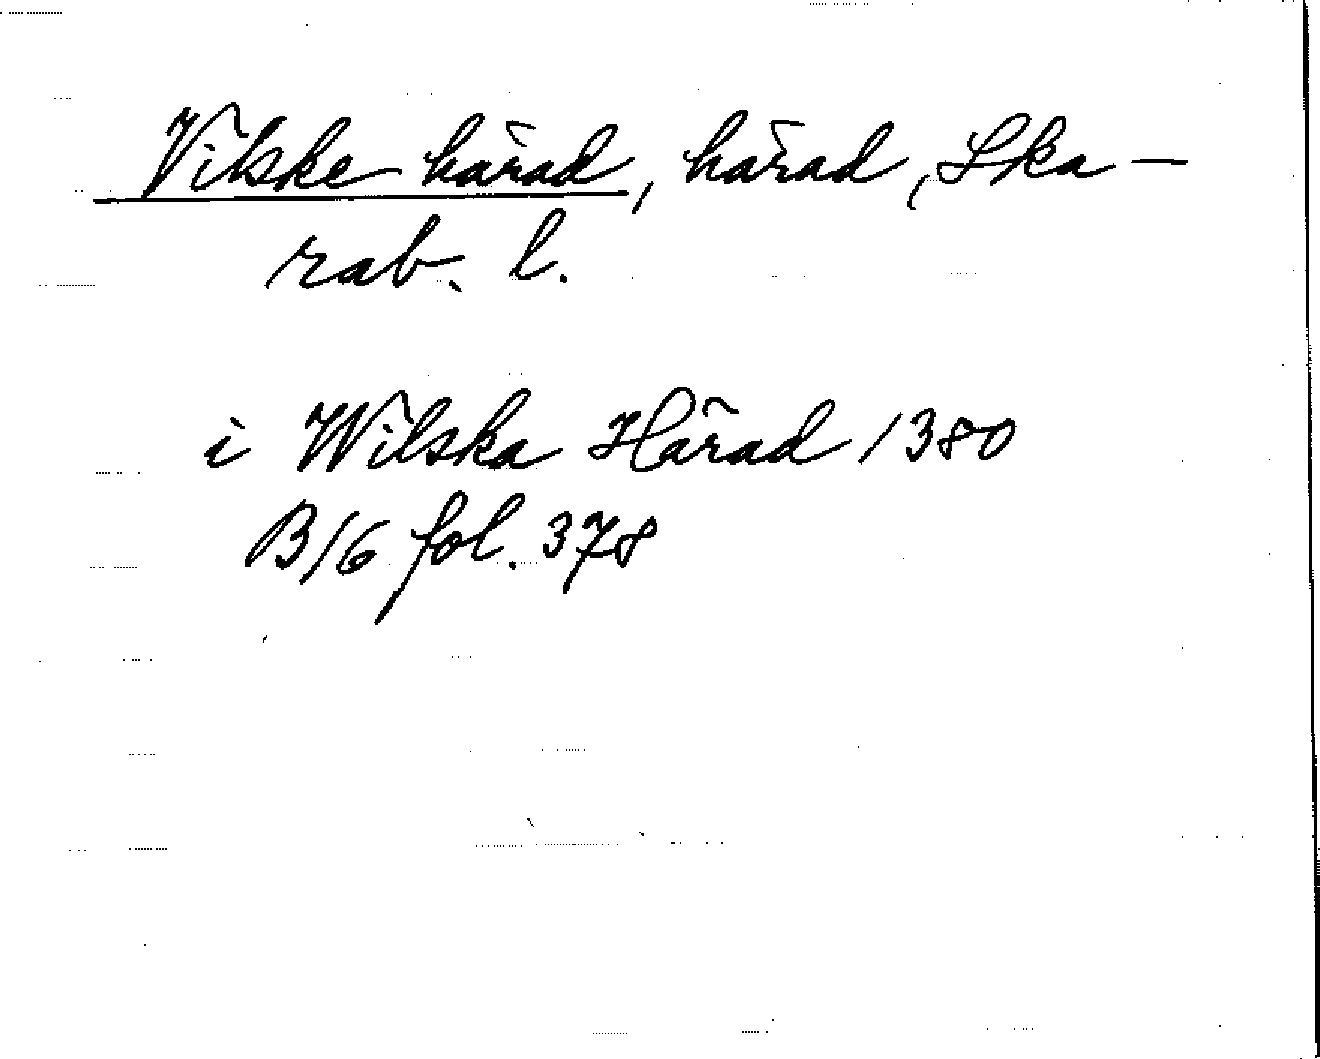 Vilske härad, härad, Ska-
rab. l.
i Wilska Härad 1380
B16 fol. 378